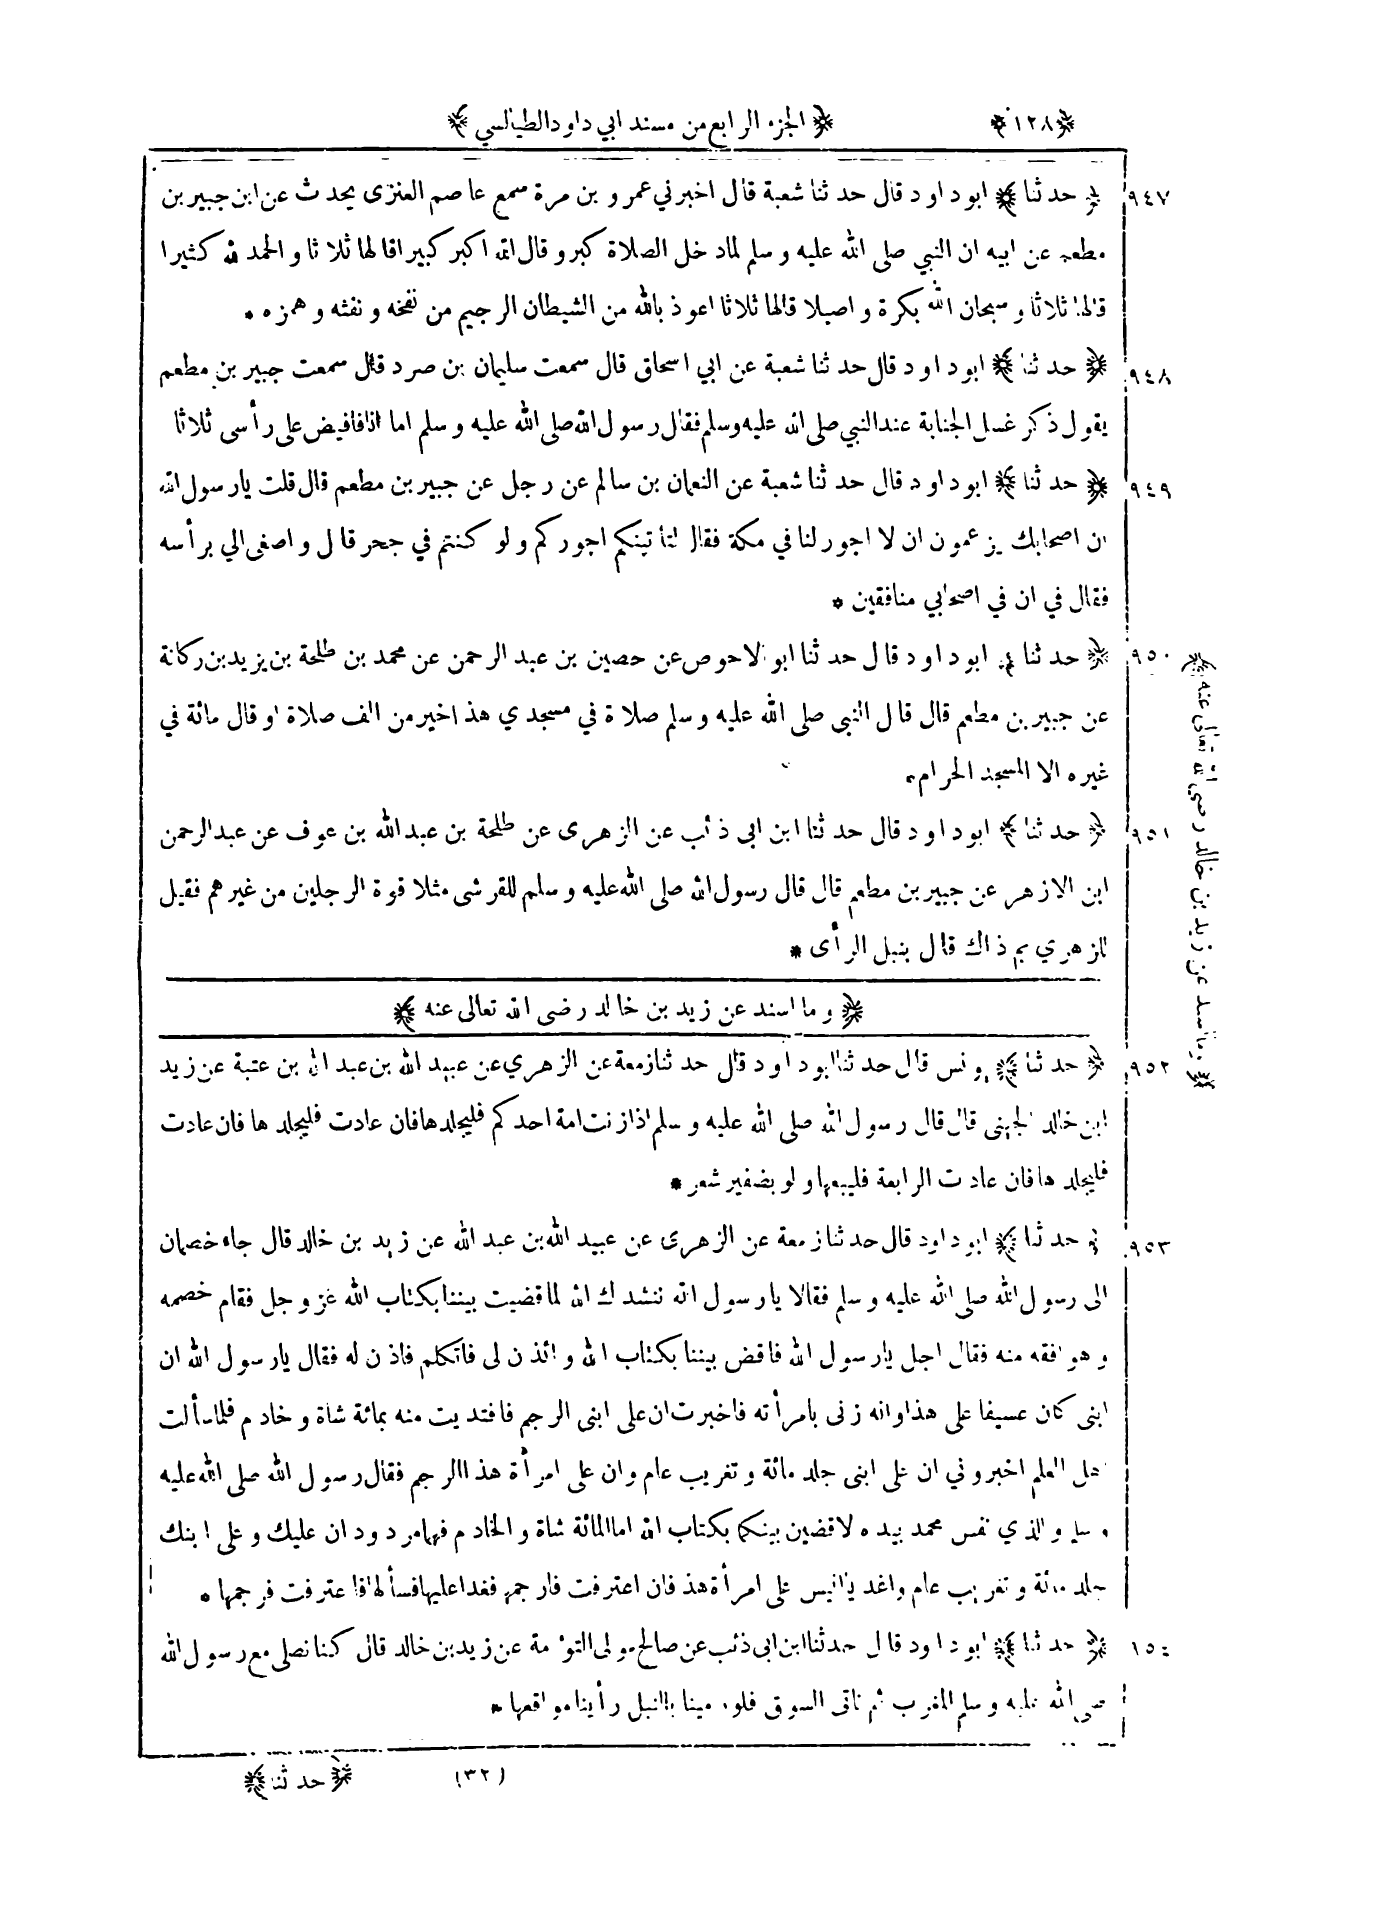 ﴿١٢٨﴾ ﴿الجزء الرابع من مسند ابي داود الطيالسي﴾
٩٤٧ ﴿ حدثنا ﴾ ابو داود قال حدثنا شعبة قال اخبرني عمرو بن مرة سمع عاصم العنزى يحدث عن ابن جبير بن
مطعم عن ابيه ان النبي صلى الله عليه وسلم لما دخل الصلاة كبر وقال الله اكبر كبيرا قالها ثلاثا والحمد لله كثيرا
قالها ثلاثا وسبحان الله بكرة واصيلا قالها ثلاثا اعوذ بالله من الشيطان الرجيم من نفخه ونفثه وهمزه *
٩٤٨ ﴿ حدثنا ﴾ ابو داود قال حدثنا شعبة عن ابي اسحاق قال سمعت سليمان بن صرد قال سمعت جبير بن مطعم
يقول ذكر غسل الجنابة عند النبي صلى الله عليه وسلم فقال رسول الله صلى الله عليه وسلم اما انا فافيض على رأسى ثلاثا
٩٤٩ ﴿ حدثنا ﴾ ابو داود قال حدثنا شعبة عن النعمان بن سالم عن رجل عن جبير بن مطعم قال قلت يا رسول الله
ان اصحابك يزعمون ان لا اجور لنا في مكة فقال لتأتينكم اجوركم ولو كنتم في جحر قال واصغى الي برأسه
فقال في ان في اصحابي منافقين *
٩٥٠ ﴿ حدثنا ﴾ ابو داود قال حدثنا ابو الاحوص عن حصين بن عبد الرحمن عن محمد بن طلحة بن يزيد بن ركانة
عن جبير بن مطعم قال قال النبي صلى الله عليه وسلم صلاة في مسجدي هذا خير من الف صلاة او قال مائة في
غيره الا المسجد الحرام *
٩٥١ ﴿ حدثنا ﴾ ابو داود قال حدثنا ابن ابى ذئب عن الزهرى عن طلحة بن عبد الله بن عوف عن عبد الرحمن
ابن الازهر عن جبير بن مطعم قال قال رسول الله صلى الله عليه وسلم للقرشى مثلا قوة الرجلين من غيرهم فقيل
للزهري بم ذاك قال بنبل الرأى *
﴿ وما اسند عن زيد بن خالد رضى الله تعالى عنه ﴾
٩٥٢ ﴿ حدثنا ﴾ يونس قال حدثنا ابو داود قال حدثنا زمعة عن الزهري عن عبيد الله بن عبد الله بن عتبة عن زيد
ابن خالد الجهنى قال قال رسول الله صلى الله عليه وسلم اذا زنت امة احدكم فليجلدها فان عادت فليجلدها فان عادت
فليجلدها فان عادت الرابعة فليبعها ولو بضفير شعر *
٩٥٣ ﴿ حدثنا ﴾ ابو داود قال حدثنا زمعة عن الزهرى عن عبيد الله بن عبد الله عن زيد بن خالد قال جاء خصمان
الى رسول الله صلى الله عليه وسلم فقالا يا رسول الله ننشدك الله لما قضيت بيننا بكتاب الله عز وجل فقام خصمه
وهو افقه منه فقال اجل يا رسول الله فاقض بيننا بكتاب الله وائذن لى فاتكلم فاذن له فقال يا رسول الله ان
ابنى كان عسيفا على هذا وانه زنى بامرأته فاخبرت ان على ابنى الرجم فافتديت منه بمائة شاة وخادم فلما سألت
اهل العلم اخبروني ان على ابنى جلد مائة وتغريب عام وان على امرأة هذا الرجم فقال رسول الله صلى الله عليه
وسلم والذي نفس محمد بيده لاقضين بينكما بكتاب الله اما المائة شاة والخادم فهما مردودان عليك وعلى ابنك
جلد مائة وتغريب عام واغد يا انيس على امرأة هذا فان اعترفت فارجمها فغدا عليها فسألها فاعترفت فرجمها *
٩٥٤ ﴿ حدثنا ﴾ ابو داود قال حدثنا ابن ابى ذئب عن صالح مولى التوءمة عن زيد بن خالد قال كنا نصلى مع رسول الله
صلى الله عليه وسلم المغرب ثم نأتى السوق فلو رمينا بالنبل رأينا مواقعها *
﴿وما اسند عن زيد بن خالد رضي الله تعالى عنه﴾
(٣٢) ﴿حدثنا﴾